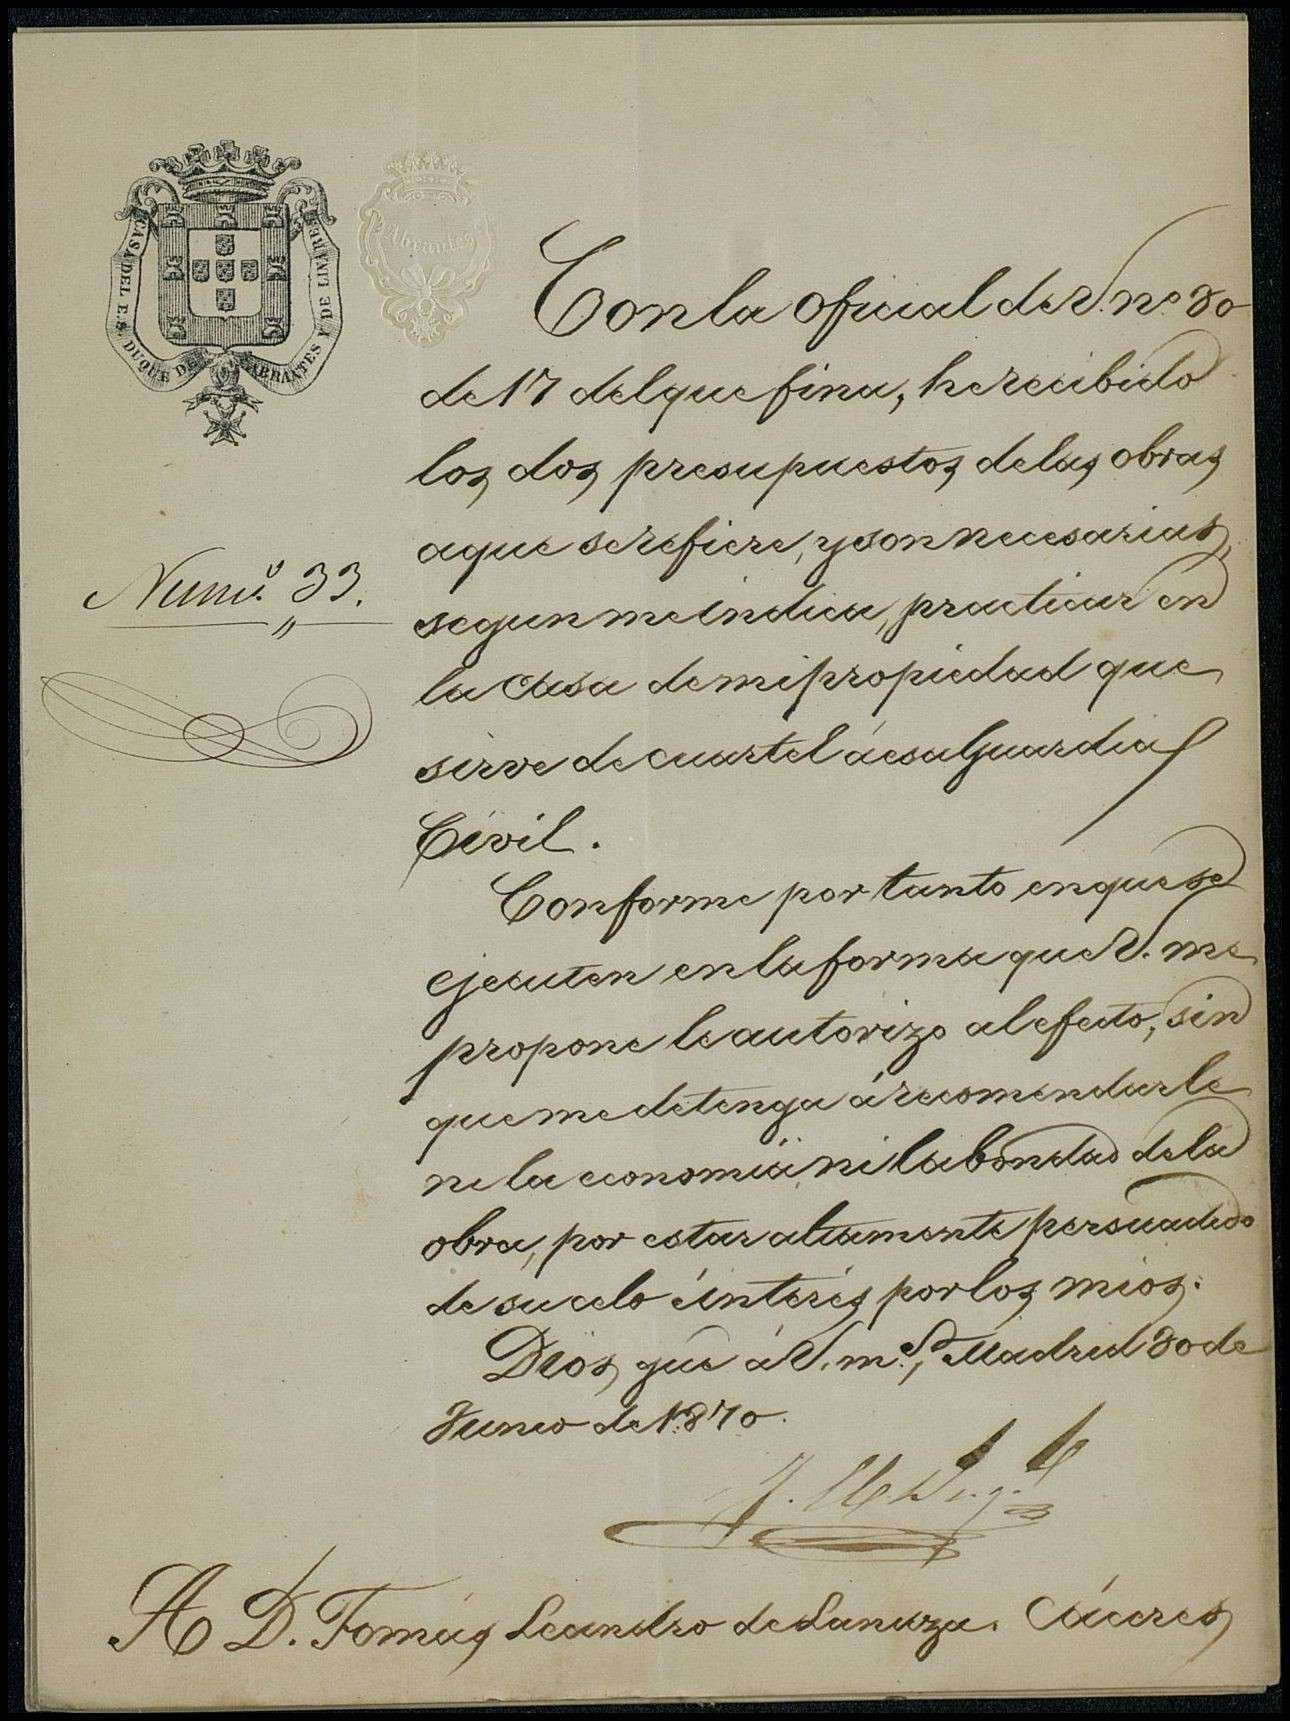 CASA DEL E. S. DUQUE DE ABRANTES Y DE LINARES
Abrantes
Con la oficial de V. nº 30
de 17 del que fina, he recibido
los dos presupuestos de las obras
a que se refiere, y son necesarias,
segun me indica, practicar en
la casa de mi propiedad que
sirve de cuartel á esa Guardia
Civil.
Numº. 33.
Conforme por tanto en que se
ejecuten en la forma que V. me
propone le autorizo al efecto, sin
que me detenga á recomendarle
ni la economia, ni la bondad de la
obra, por estar altamente persuadido
de su celo é interés por los mios.
Dios gue á V. mº. aº. Madrid 30 de
Junio de 1870.
A D. Tomás Leandro de Lanuza. Cáceres